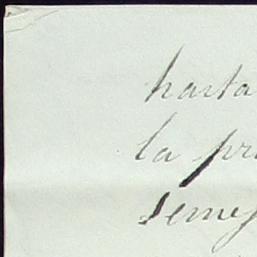 hasta
la pr
semej